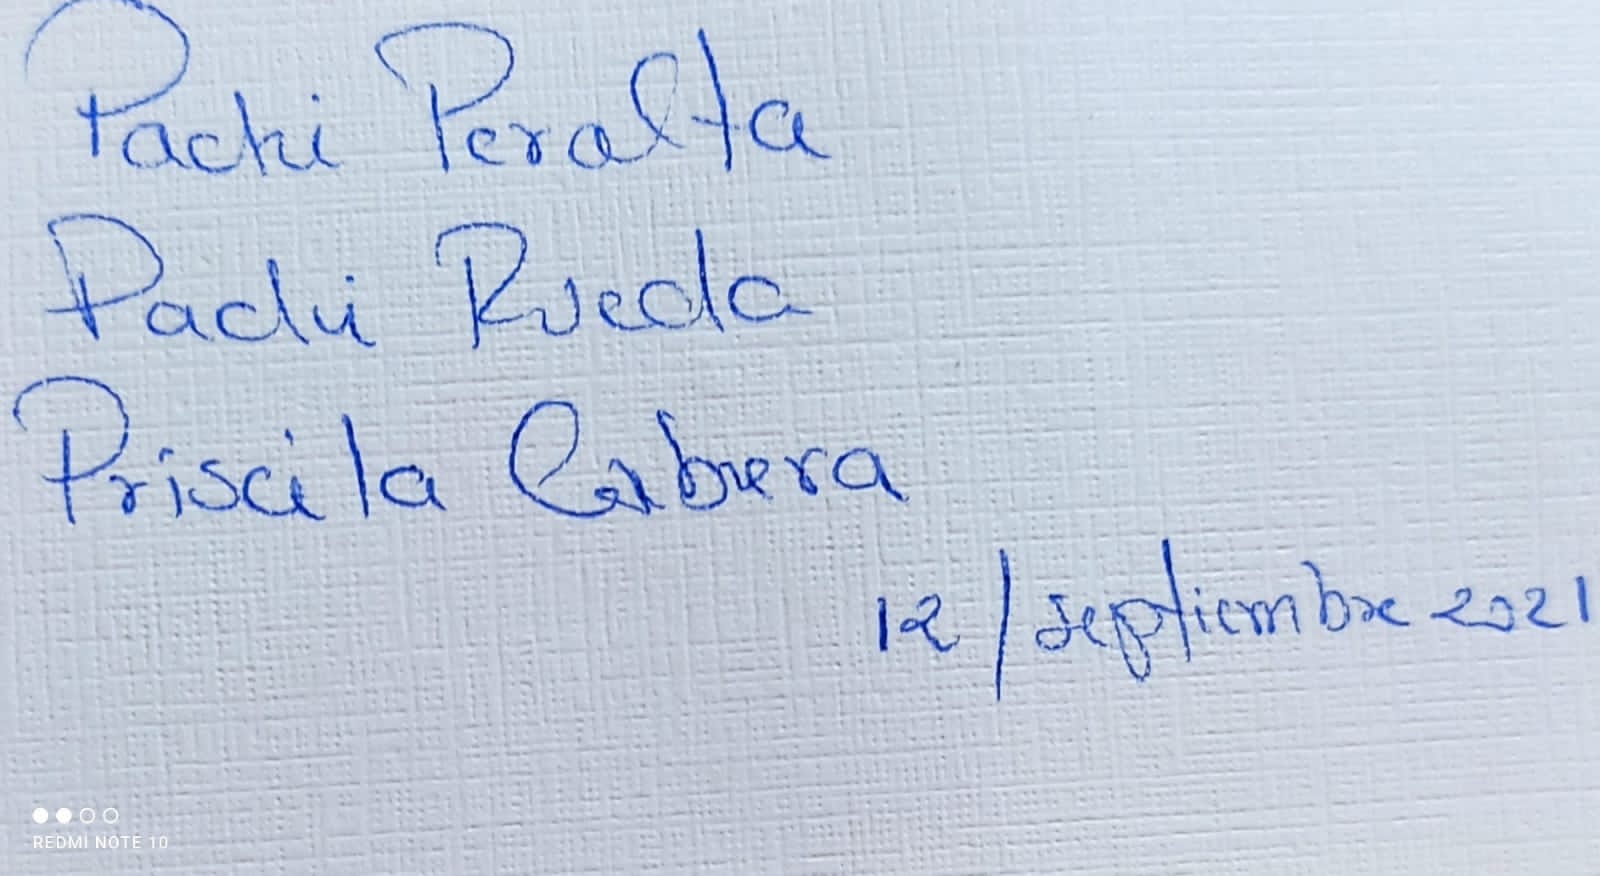 Pachi Peralta
Pachi Rueda
Priscila Cabrera
12/septiembre 2021
REDMI NOTE 10